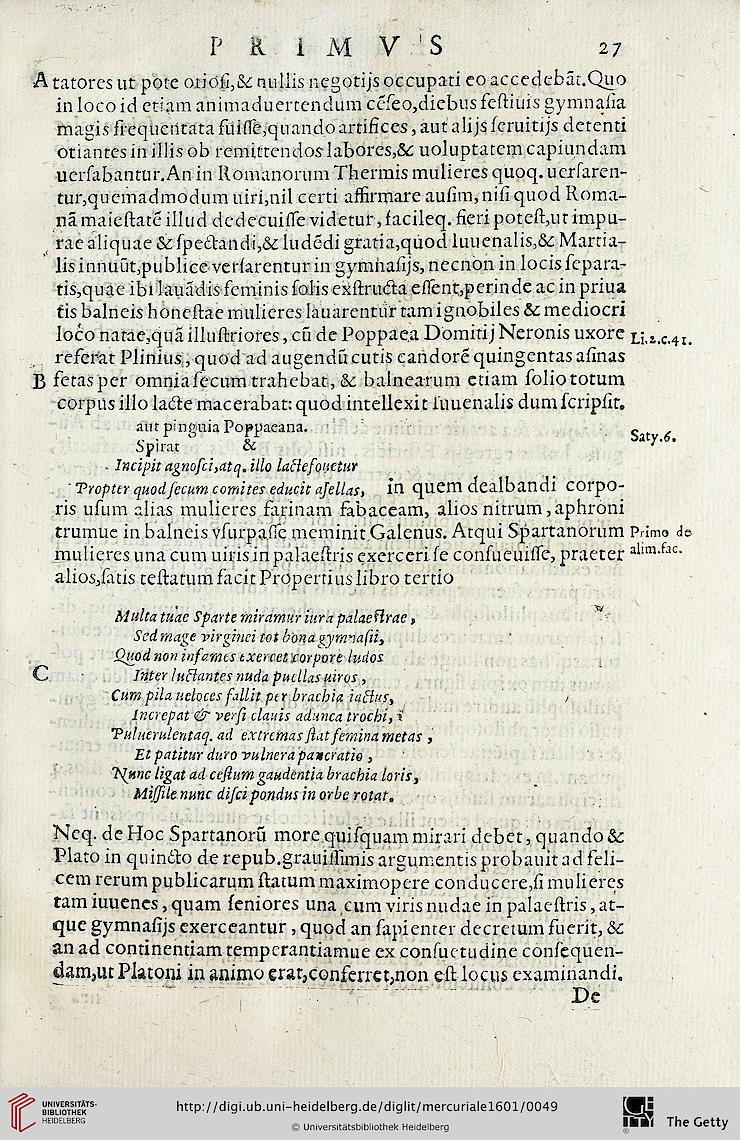 PRIMVS 27
A tatores ut pote otiosi,& nullis negotijs occupati eo accedebāt.Quo
in loco id etiam animaduertendum cēseo,diebus festiuis gymnasia
magis frequentata fuisse,quando artifices, aut alijs seruitijs detenti
otiantes in illis ob remittendos labores,& uoluptatem capiundam
uersabantur.An in Romanorum Thermis mulieres quoq. uersaren-
tur,quemadmodum uiri,nil certi affirmare ausim, nisi quod Roma-
nā maiestatē illud dedecuisse videtur, facileq. fieri potest,ut impu-
rae aliquae & spectandi,& ludēdi gratia,quod Iuuenalis,& Martia-
lis innuūt,publice versarentur in gymnasijs, necnon in locis separa-
tis,quae ibi lauādis feminis solis exstructa essent,perinde ac in priua
tis balneis honestae mulieres lauarentur tam ignobiles & mediocri
loco natae,quā illustriores, cū de Poppaea Domitij Neronis uxore Li.2.c.41.
referat Plinius, quod ad augendū cutis candorē quingentas asinas
B fetas per omnia secum trahebat, & balnearum etiam solio totum
corpus illo lacte macerabat: quod intellexit Iuuenalis dum scripsit.
aut pinguia Poppaeana. Saty.6.
Spirat &
Incipit agnosci,atq. illo lacte fouetur
Propter quod secum comites educit asellas, in quem dealbandi corpo-
ris usum alias mulieres farinam fabaceam, alios nitrum, aphroni
trumue in balneis vsurpasse meminit Galenus. Atqui Spartanorum Primo de
mulieres una cum uiris in palaestris exerceri se consueuisse, praeter alim.fac.
alios,satis testatum facit Propertius libro tertio
Multa tuae Sparte miramur iura palaestrae,
Sed mage virginei tot bona gymnasii,
Quod non infames exercet corpore ludos
C Inter luctantes nuda puellas uiros,
Cum pila ueloces fallit per brachia iactus,
Increpat & versi clauis adunca trochi,
Puluerulentaq. ad extremas stat femina metas,
Et patitur duro vulnera pancratio,
Nunc ligat ad cestum gaudentia brachia loris,
Missile nunc disci pondus in orbe rotat.
Neq. de Hoc Spartanorū more quisquam mirari debet, quando &
Plato in quincto de repub.grauissimis argumentis probauit ad feli-
cem rerum publicarum statum maximopere conducere,si mulieres
tam iuuenes, quam seniores una cum viris nudae in palaestris, at-
que gymnasijs exerceantur, quod an sapienter decretum fuerit, &
an ad continentiam temperantiamue ex consuetudine consequen-
dam,ut Platoni in animo erat,conferret,non est locus examinandi.
De
UNIVERSITÄTS-
BIBLIOTHEK
HEIDELBERG
http://digi.ub.uni-heidelberg.de/diglit/mercuriale1601/0049
© Universitätsbibliothek Heidelberg
GETTY
The Getty